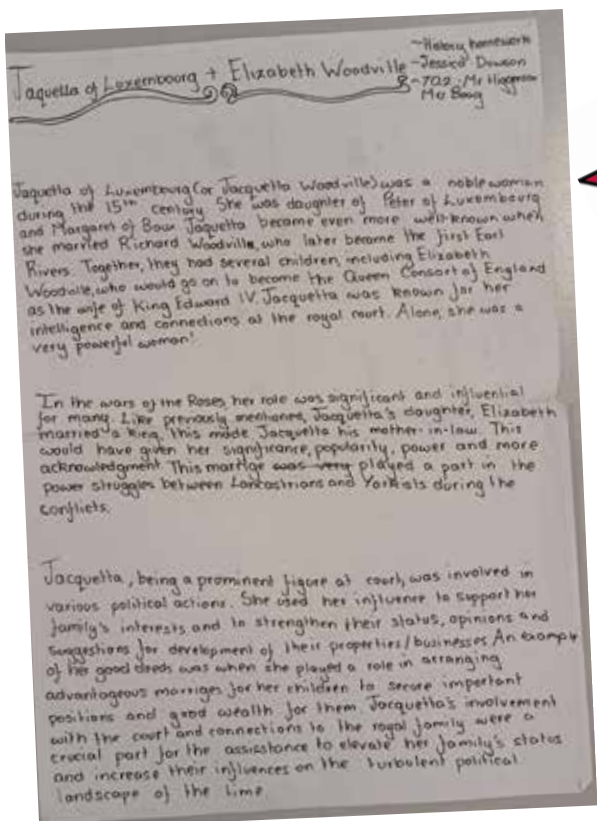 Jaquetta of Luxembourg + Elizabeth Woodville
~History homework
~Jessica Dawson
~7Q2 - Mr Higginson
Mrs
Jaquetta of Luxembourg (or Jacquetta Woodville) was a noble woman
during the 15th century. She was daughter of Peter of Luxembourg
and Margaret of Baux Jaquetta became even more well-known when
she married Richard Woodville, who later became the first Earl
Rivers. Together, they had several children, including Elizabeth
Woodville, who would go on to become the Queen Consort of England
as the wife of King Edward IV. Jacquetta was known for her
intelligence and connections at the royal court. Alone, she was a
very powerful woman!
In the wars of the Roses, her role was significant and influential
for many. Like previously mentioned, Jacquetta's daughter, Elizabeth
married a king, this made Jacquetta his mother-in-law. This
would have given her significance, popularity, power and more
acknowledgment This marrige was very played a part in the
power struggles between Lancastrians and Yorkists during the
conflicts.
Jacquetta, being a prominent figure at court, was involved in
various political actions. She used her influence to support her
family's interests and to strengthen their status, opinions and
suggestions for development of their properties/businesses An example
of her good deeds was when she played a role in arranging
advantageous marriges for her children to secure important
positions and good wealth for them. Jacquetta's involvement
with the court and connections to the royal family were a
crucial part for the assisstance to elevate her family's status
and increase their influences on the turbulent political
landscape of the time.